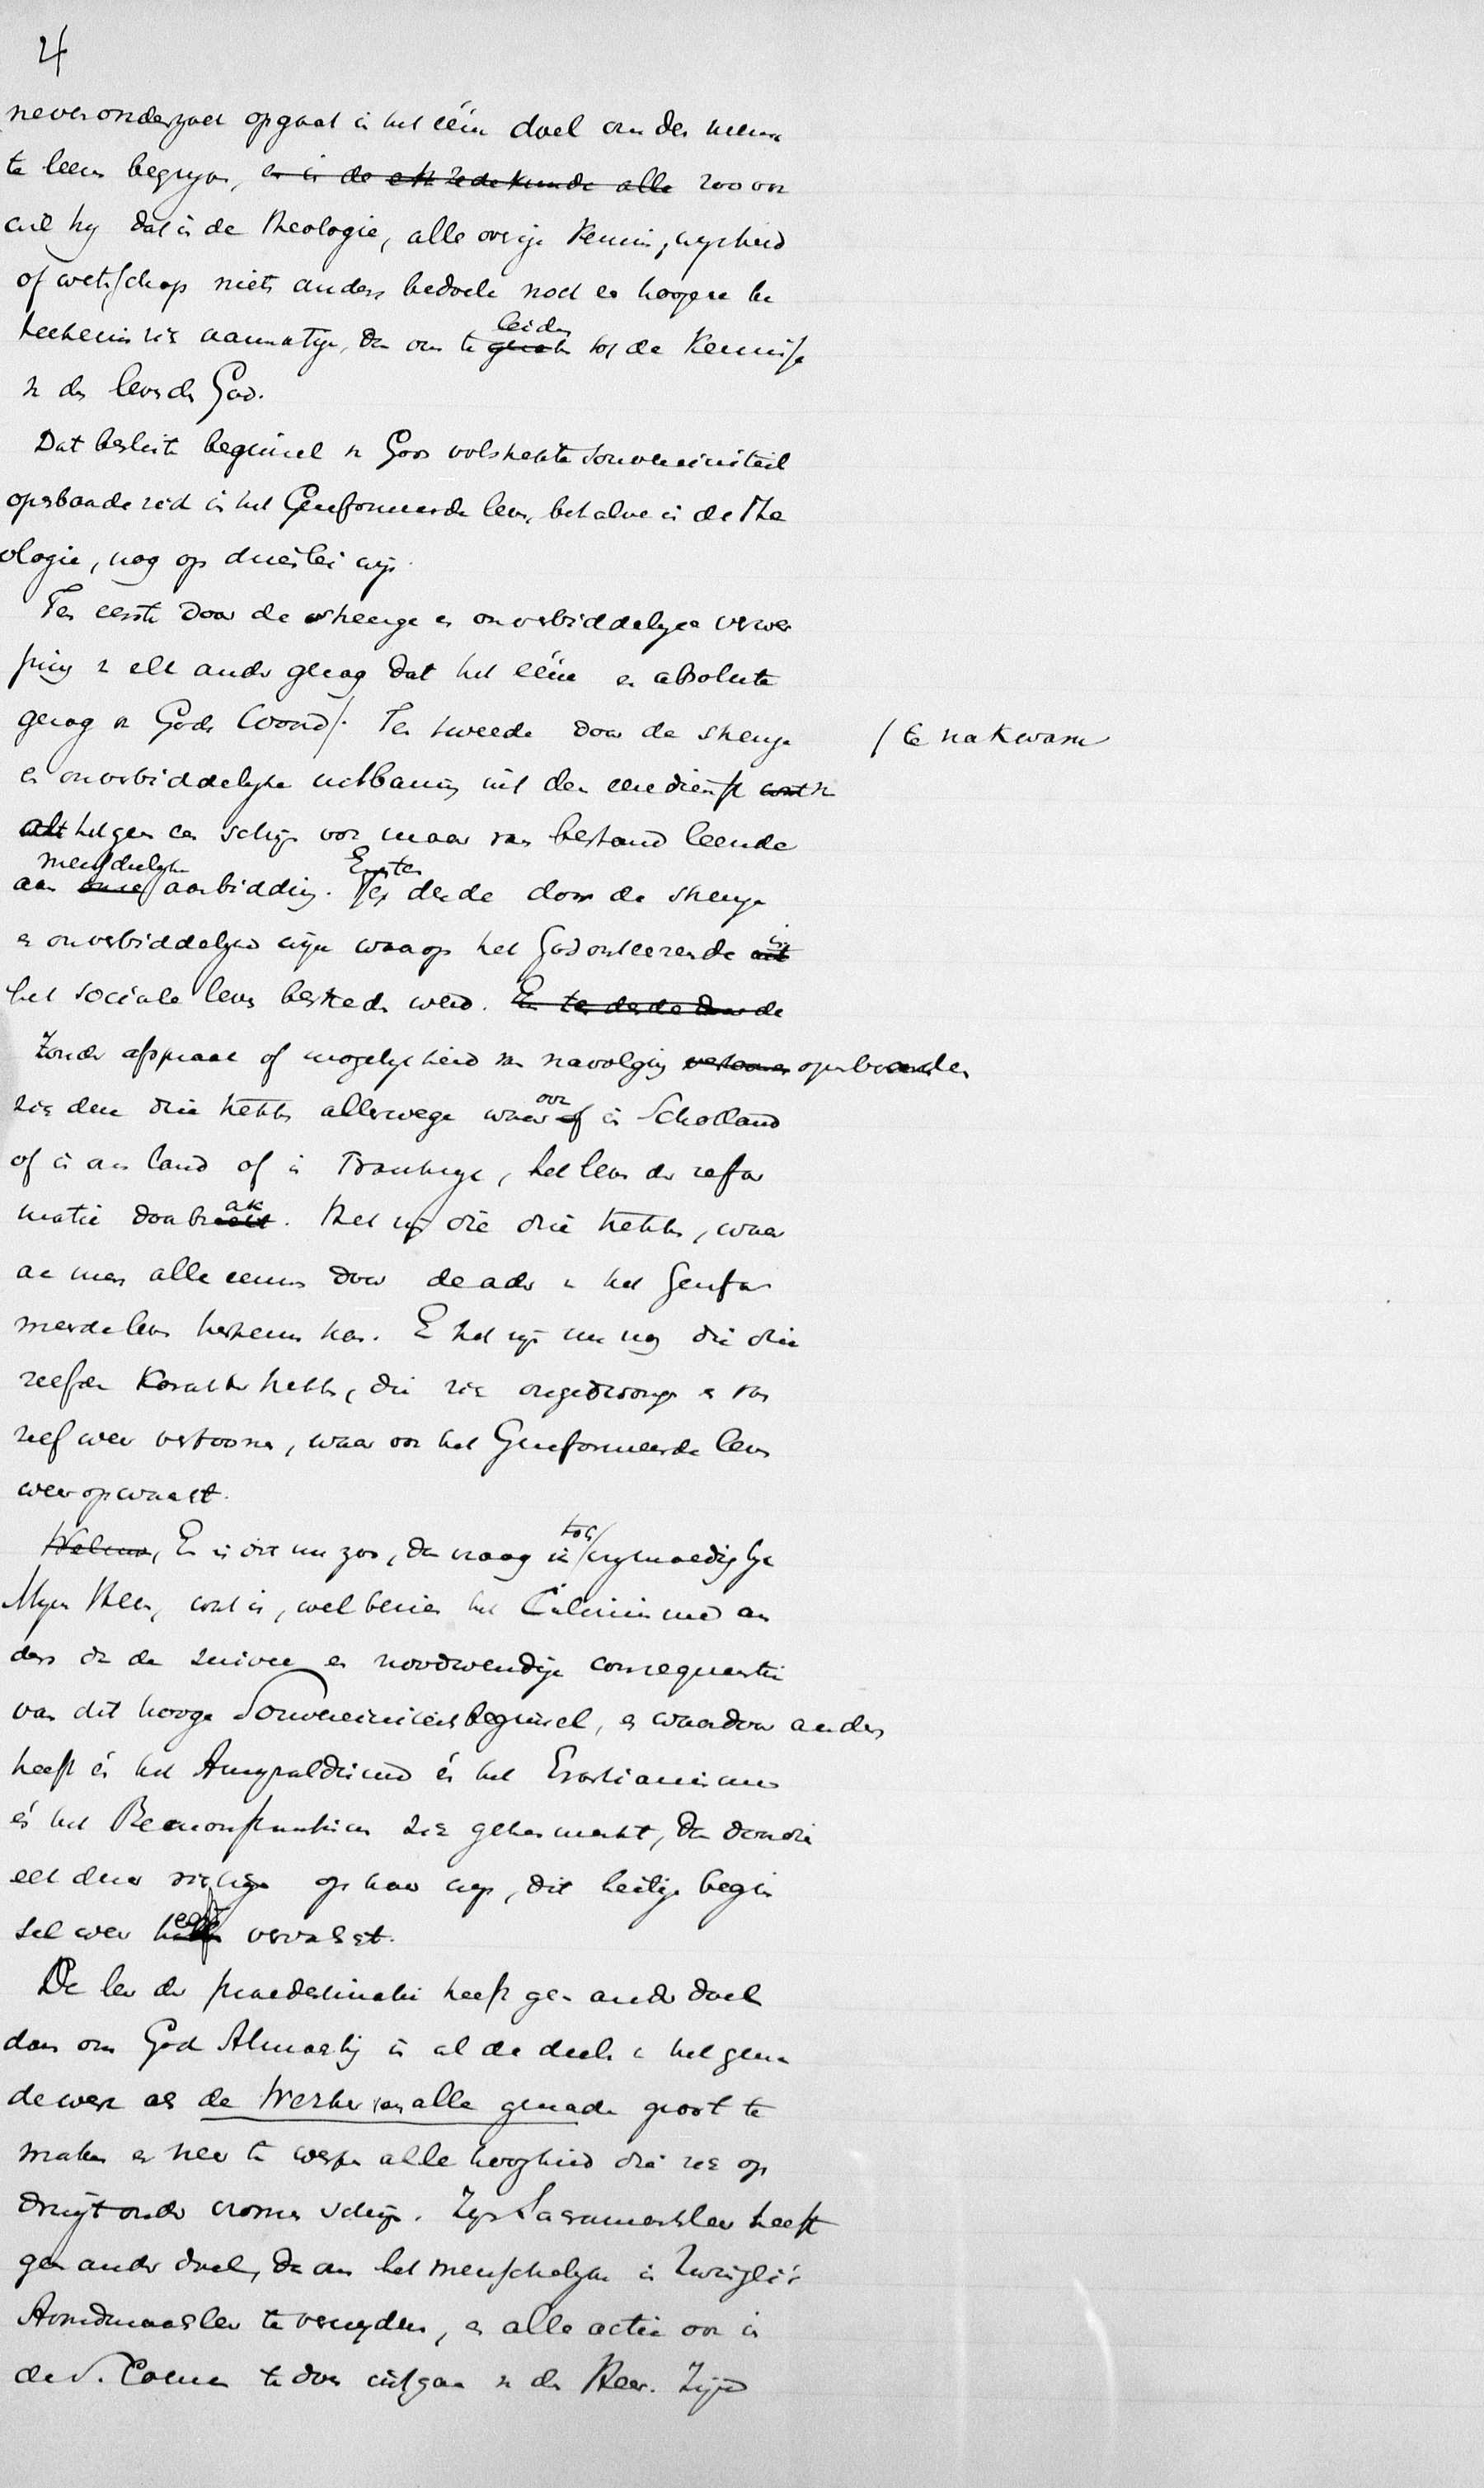 4
neveronderzoek opgaat in het ééne doel om den mensch
te leeren begrypen, en in de zedekunde alle zoo ook
wil hy dat in de theologie, alle overige kennis, wysheid
of wetenschap niets anders bedoele noch er hoogere be
teekenis zich aanmatige, dan om te leiden tot de kennisse
v. den levenden God.
Dat besliste beginsel v. Gods volstrekte souvereiniteit
openbaarde zich in het Gereformeerde leven, behalve in de The
ologie, nog op drieërlei wijs.
Ten eerste door de strenge en onverbiddelyke verwer
ping v elk ander gezag dat het ééne en absolute
gezag v Gods Woord/. Ten tweede door de strenge
/ te na kwam
en onverbiddelyke uitbanning uit den eeredienst v
hetgeen een schijn ook maar van bestand leende
aan menschelyke aanbidding. En ten derde door de strenge
en onverbiddelyke wijze waarop het Godonteerende in
het sociale leven bestreden werd. En ten derde door de
Zonder afspraak of mogelykheid van navolging vertoonen openbaarden
zich deze drie trekken allerwege waar ook in Schotland
of in ons land of in Frankryk, het leven der refor
matie doorbrak. Het zijn die drie trekken, waar
aan men alleen door de ader v het Gerefor
meerde leven herkennen kan. En het zijn nu nog die drie
zelfde karaktertrekken, die zich ongedwongen en van
zelf weer vertoonen, waar ook het Gereformeerde leven
weer opwaakt.
Welnu, En is dit nu zoo, dan vraag ik toch vrymoediglyk
Myne Heeren, wat is, wel bezien het Calvinisme an
ders dan de zuivere en noodwendige consequentie
van dit hooge Souvereiniteitsbeginsel, en waardoor anders
heeft én het Amyraldisme én het Erastianisme
én het Remonstrantisme zich gekenmerkt, dan doordien
elk dezer richtingen op haar wys, dit heilige begin
sel weer heeft vervalscht.
De leer der praedestinatie heeft geen ander doel
dan om God Almachtig in al de deelen v het gena
dewerk als de Werker van alle genade groot te
maken en neer te werpen alle hoogheid die zich op
dringt onder vromen schijn. Zyn Sacramentsleer heeft
geen ander doel, dan om het menschelyke in Zwingli's
Avondmaalsleer te vermyden, en alle actie ook in
de S. Coena te doen uitgaan v den Heer. Zijne